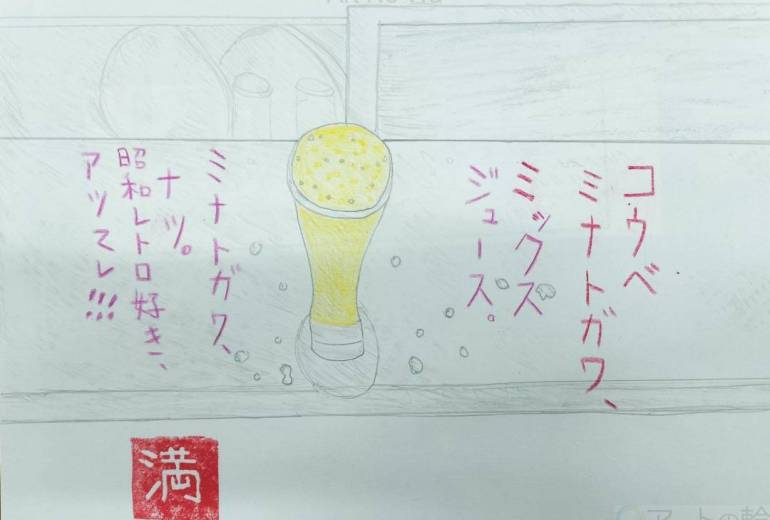 コウベ
ミナトガワ、
ミックス
ジュース。
ミナトガワ、
ナツ。
昭和レトロ好き、
アツマレ!!!
満